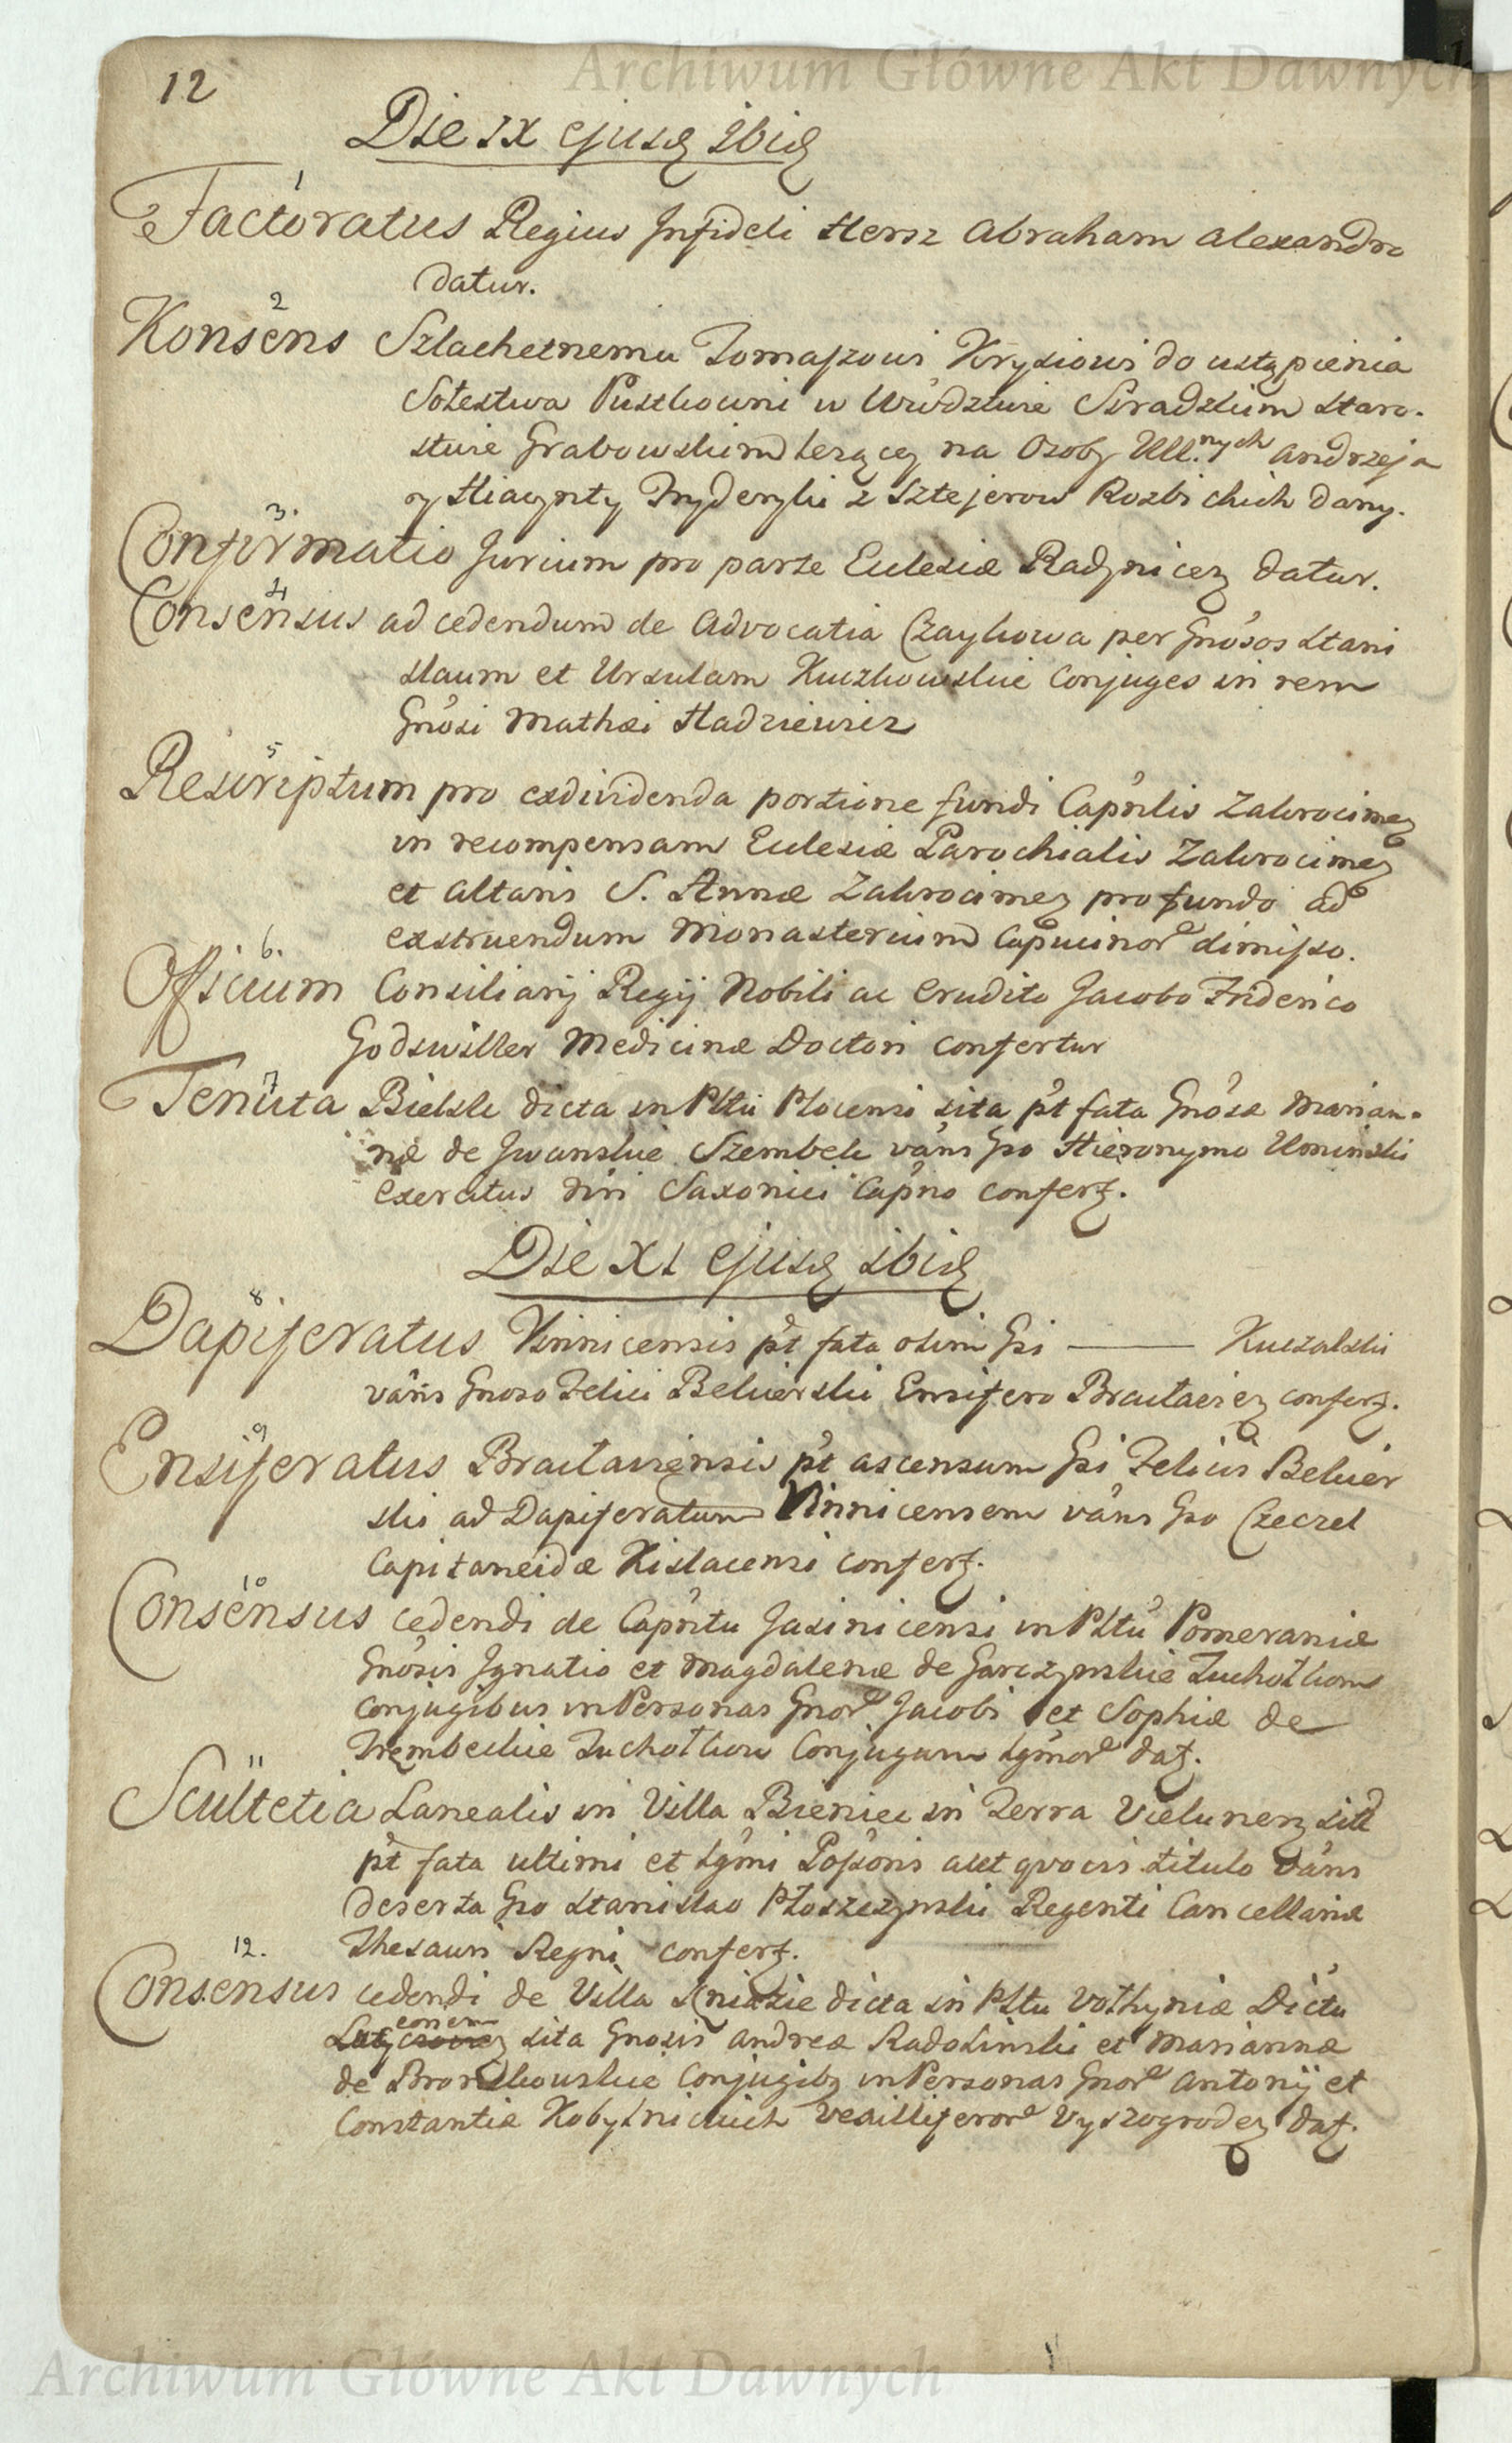 Archiwum Główne Akt Dawnych
12
Die IX ejusd ibid
1
Factoratus Regius Infideli Hersz Abraham Alexandro
datur.
2
Konsens Szlachetnemu Tomaszowi Krysiowi do ustąpienia
Sołestwa Pustkowni w Wwdztwie Siradzkim Staro-
stwie Grabowskim leżącey na Osoby Ull.nych Andrzeja
y Hiacynty Fryderyki z Sztejerow Rozbickich dany.
3.
Confirmatio Jurium pro parte Eclesiæ Radzynicen datur.
4
Consensus ad cedendum de Advocatia Czaykowa per Gnosos Stani
slaum et Ursulam Kuczkowskie Conjuges in rem
Gnosi Mathæi Hadziewicz
5
Rescriptum pro exdividenda portione fundi Capnlis Zakrocimen
in recompensam Eclesiæ Parochialis Zakrocimen
et Altaris S. Annæ Zakrocimen pro fundo ad
exstruendum Monasterium Capucinor dimisso.
6.
Officium Consiliarij Regij Nobili ac Erudito Jacobo Friderico
Godswiller Medicinæ Doctori confertur
7
Tenuta Bielsk dicta in Pltu Plocensi sita pt fata Gnosæ Marian-
næ de Iwanskie Szembek vans Gso Hieronymo Uminski
Exercitus nri Saxonici Capno confert.
Die XI ejusd ibid
8
Dapiferatus Vinnicensis pt fata olim Gsi ——— Kuczalski
vans Gnoso Felici Bekierski Ensifero Braclavien confert.
9
Ensiferatus Braclaviensis pt ascensum Gsi Felicis Bekier
ski ad Dapiferatum Vinnicensem vans Gso Czeczel
Capitaneidæ Kislacensi confert.
10
Consensus cedendi de Capntu Jasinicensi in Pltu Pomeraniæ
Gnosis Ignatio et Magdalenæ de Garczynskie Zuchotkom
Conjugibus in Personas Gnor Jacobi et Sophiæ de
Trembeckie Zuchotkow Conjugum Lgmor dat.
11
Scultetia Lanealis in Villa Bieniec in Terra Vielunen sita
pt fata ultimi et Lgmi Possoris aut qvocis titulo vans
deserta Gso Stanislao Ptoszczynski Regenti Cancellariæ
Thesauri Regni confert.
12.
Consensus cedendi de Villa Kniazie dicta in Pltu Volhyniæ Dictu
sita Gnosis Andreæ Radolinski et Mariannæ
de Bronikowskie Conjugibs in Personas Gnor Antonij et
Constantiæ Kobylnickich Vexilliferor Vyszogroden dat.
Archiwum Główne Akt Dawnych